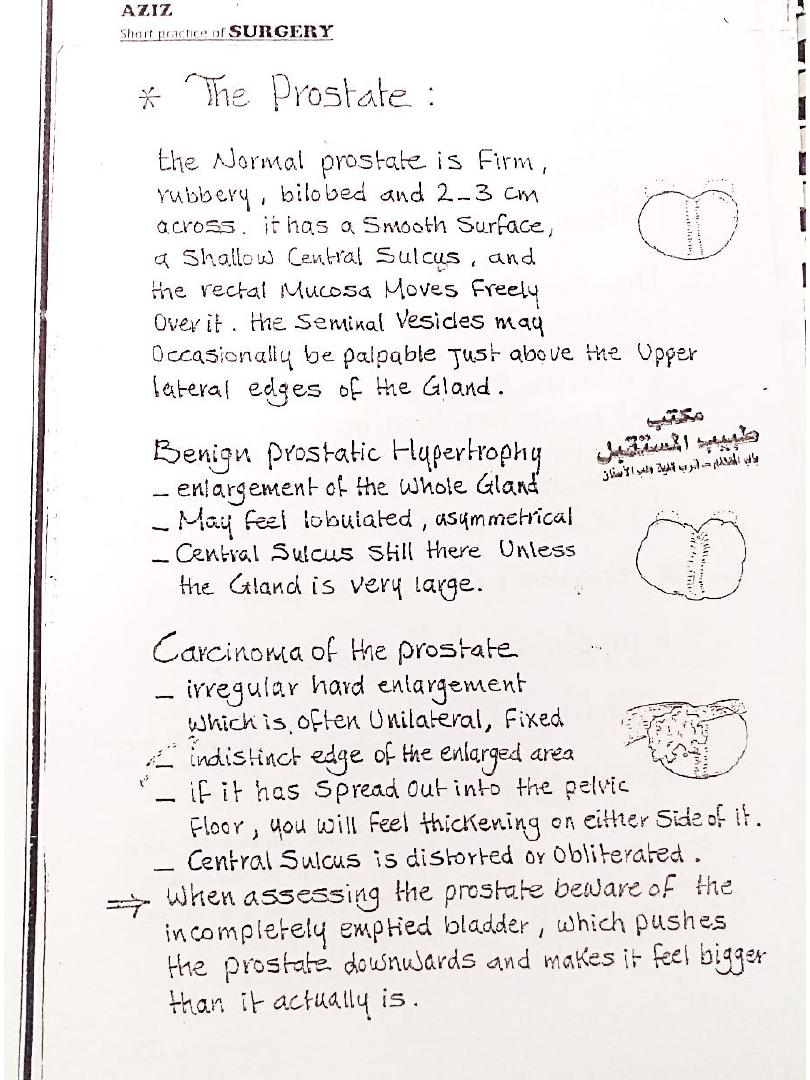 AZIZ
Short practice of SURGERY
* The Prostate :
the Normal prostate is Firm,
rubbery, bilobed and 2-3 cm
across. it has a Smooth Surface,
a Shallow Central Sulcus, and
the rectal Mucosa Moves Freely
Over it. the Seminal Vesicles may
Occasionally be palpable Just above the Upper
lateral edges of the Gland.
مكتب
طبيب المستقبل
Benign Prostatic Hypertrophy
- enlargement of the Whole Gland
- May feel lobulated, asymmetrical
- Central Sulcus Still there Unless
the Gland is very large.
Carcinoma of the prostate
- irregular hard enlargement
Which is often Unilateral, Fixed
- indistinct edge of the enlarged area
- if it has Spread Out into the pelvic
Floor, you will Feel thickening on either Side of it.
- Central Sulcus is distorted or Obliterated.
⇒ When assessing the prostate beware of the
incompletely emptied bladder, which pushes
the prostate downwards and makes it feel bigger
than it actually is.